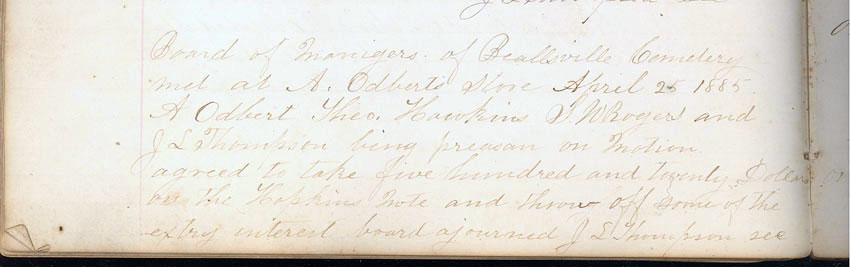 J L Thompson sec
Board of Manigers of Beallsville Cemetery
met at A. Odberts Store April 25 1885.
A Odbert Theo. Hawkins S. W Rogers and
J L Thompson being preasan on Motion
agreed to take five hundred and twenty Dollars
on the Hopkins Note and throw off some of the
extry interest board ajourned J L Thompson sec